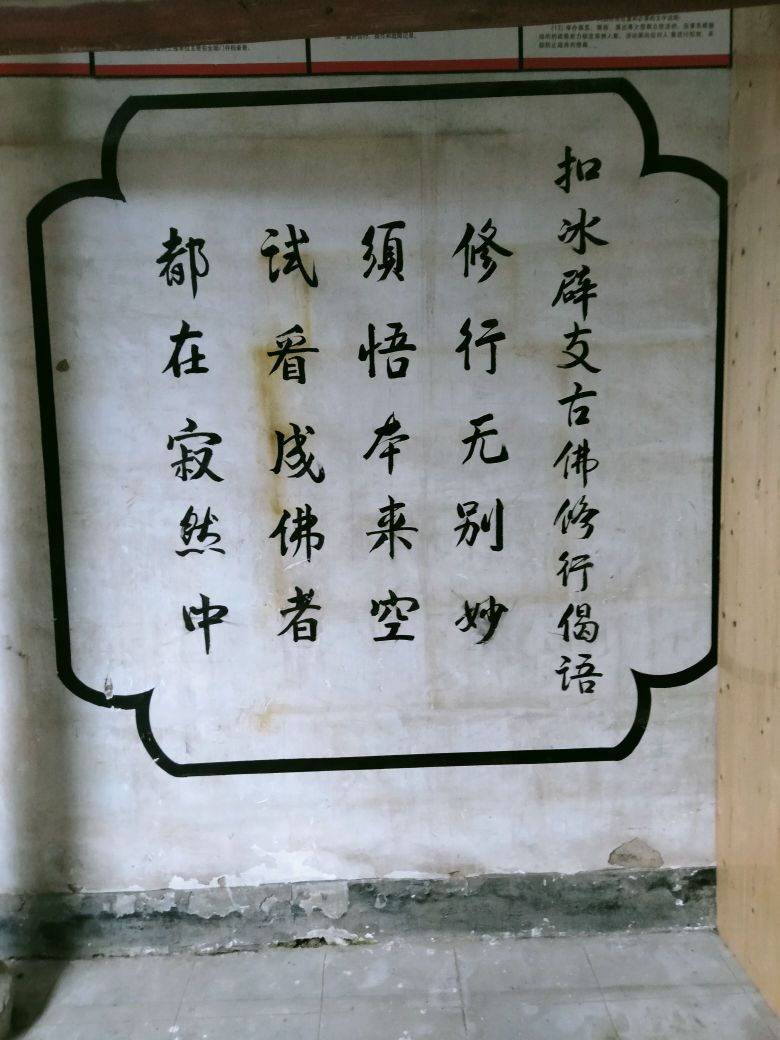 扣冰辟支古佛修行偈语
修行无别妙
須悟本来空
试看成佛者
都在寂然中